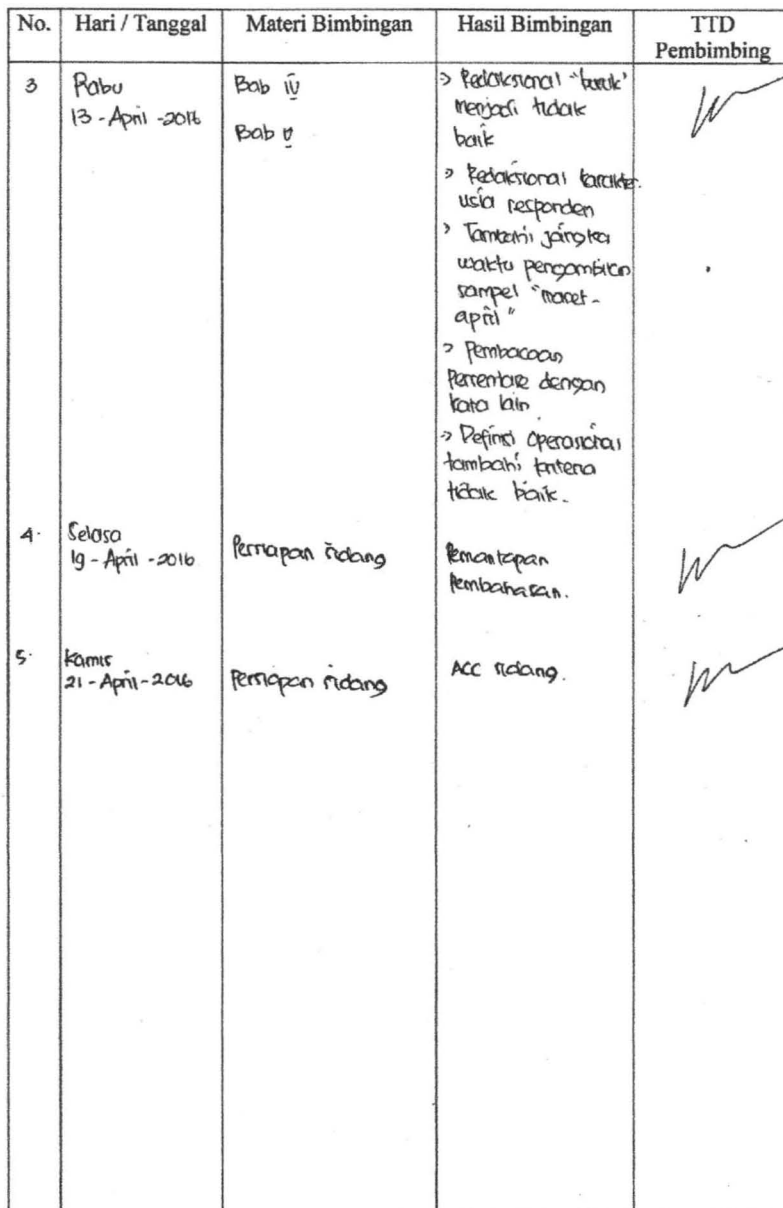 No. Hari / Tanggal Materi Bimbingan Hasil Bimbingan TTD
Pembimbing
3 Rabu
13 - April - 2016
Bab IV
Bab V
> Redaksional "buruk"
menjadi tidak
baik
> Redaksional karakter
usia responden
> Tambahi jangka
waktu pengambilan
sampel "maret -
april"
> Pembacaan
Persentase dengan
kata lain
> Definisi Operasional
tambahi kriteria
tidak baik.
4. Selasa
19 - April - 2016
Persiapan sidang
Pemantapan
Pembahasan.
5. Kamis
21 - April - 2016
Persiapan sidang
ACC sidang.